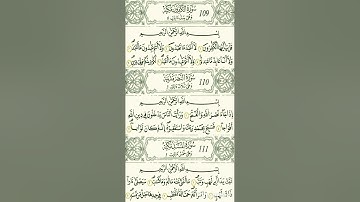 109
سورة الكافرون مكية
بسم الله الرحمن الرحيم
قل يا أيها الكافرون لا أعبد ما تعبدون ولا أنتم عابدون ما أعبد
ولا أنا عابد ما عبدتم ولا أنتم عابدون ما أعبد لكم دينكم ولي دين
110
سورة النصر مدنية
بسم الله الرحمن الرحيم
إذا جاء نصر الله والفتح ورأيت الناس يدخلون في دين الله
أفواجا فسبح بحمد ربك واستغفره إنه كان توابا
111
بسم الله الرحمن الرحيم
تبت يدا أبي لهب وتب ما أغنى عنه ماله وما كسب سيصلى نارا
ذات لهب وامرأته حمالة الحطب في جيدها حبل من